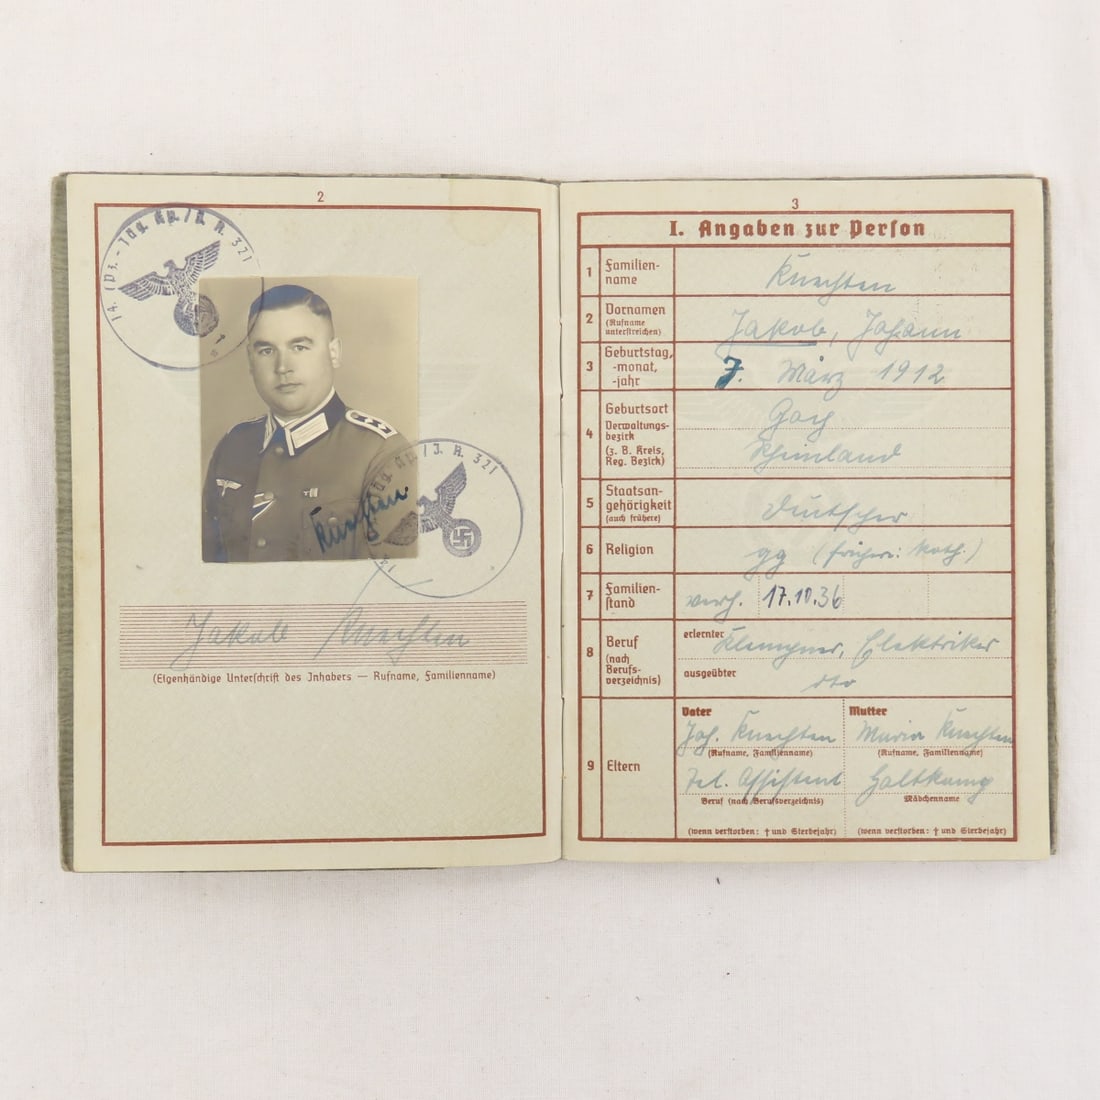 2
14. (Pz.-Jäg. Kp./J. R. 321
Jäg. Kp./J. R. 321
Knechten
Jakob Knechten
(Eigenhändige Unterschrift des Inhabers — Rufname, Familienname)
3
I. Angaben zur Person
1 Familien-
name
Knechten
2 Vornamen
(Rufname
unterstreichen)
Jakob, Johann
3 Geburtstag,
-monat,
-jahr
7. März 1912
4 Geburtsort
Verwaltungs-
bezirk
(z. B. Kreis,
Reg. Bezirk)
Goch
Rheinland
5 Staatsan-
gehörigkeit
(auch frühere)
Deutscher
6 Religion
gg (früher: kath.)
7 Familien-
stand
verh. 17.10.36
8 Beruf
(nach
Berufs-
verzeichnis)
erlernter Klempner, Elektriker
ausgeübter
dto
9 Eltern
Vater
Joh. Knechten
(Rufname, Familienname)
Tel. Assistent
Beruf (nach Berufsverzeichnis)
(wenn verstorben: † und Sterbejahr)
Mutter
Maria Knechten
(Rufname, Familienname)
Mädchenname
(wenn verstorben: † und Sterbejahr)